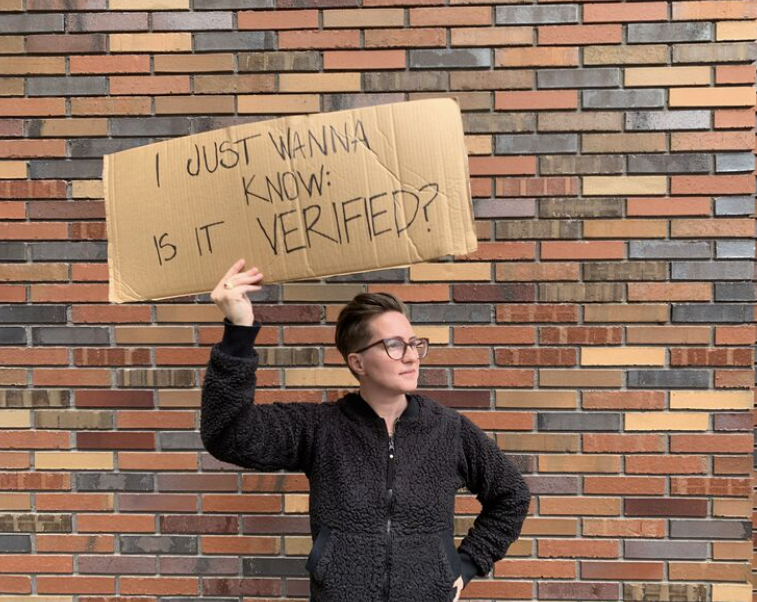 I JUST WANNA
KNOW:
IS IT VERIFIED?